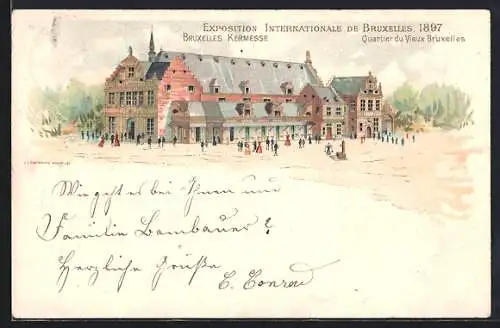 EXPOSITION INTERNATIONALE DE BRUXELLES, 1897
BRUXELLES KERMESSE Quartier du Vieux Bruxelles
Wie geht es bei Ihnen und
Familie Bambauer?
Herzliche Grüße
C. Conrad